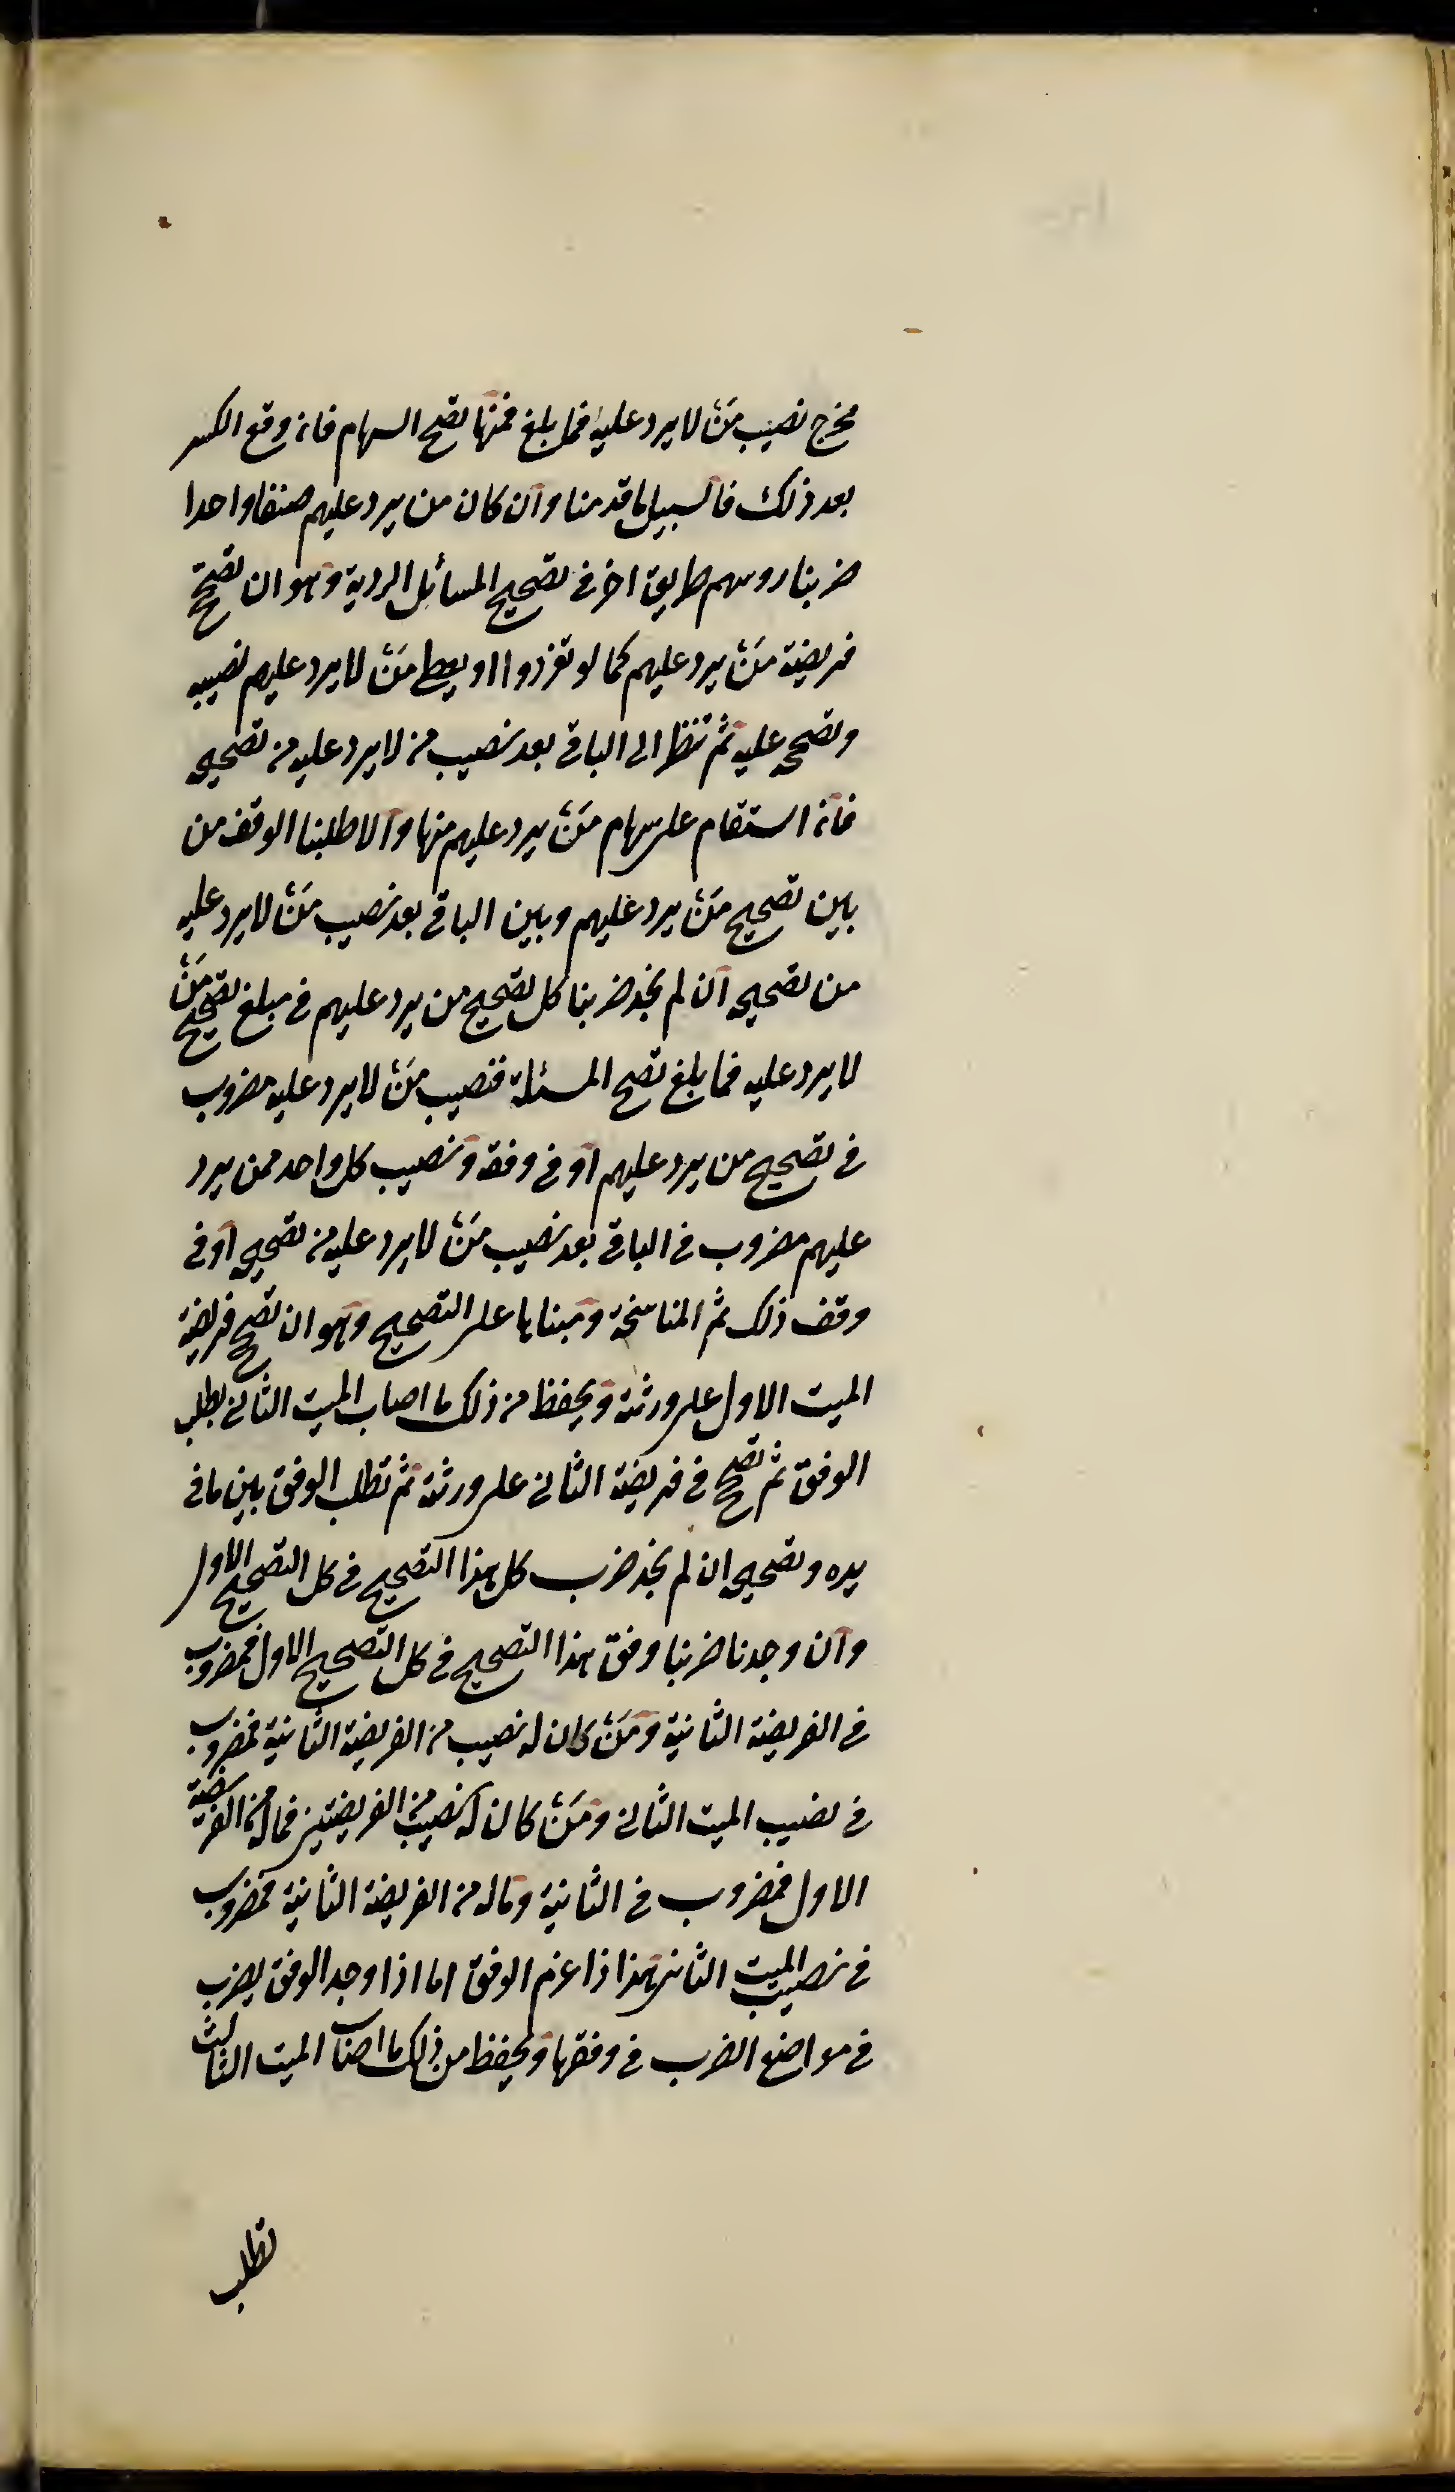 مخرج نصيب مَنْ لا يرد عليه فما بلغ فمنها تصح السهام فان وقع الكسر
بعد ذلك فالسبيل ما قدمنا وان كان من يرد عليهم صنفا واحدا
ضربنا روسهم طريق اخر فى تصحيح المسائل الردية وهو ان تصحح
فريضة مَنْ يرد عليهم كما لو تفردوا او يعطى مَنْ لا يرد عليهم نصيبه
وتصح عليه ثم تنظر الى الباقى بعد نصيب من لا يرد عليه من تصحيحه
فان استقام على سهام مَنْ يرد عليهم منها والا طلبنا الوقف من
بين تصحيح مَنْ يرد عليهم وبين الباقى بعد نصيب مَنْ لا يرد عليه
من تصحيحه ان لم نجد ضربنا كل تصحيح من يرد عليهم فى مبلغ تصحيح مَنْ
لا يرد عليه فما بلغ تصح المسئلة فنصيب مَنْ لا يرد عليه مضروب
فى تصحيح من يرد عليهم او فى وفقه ونصيب كل واحد ممن يرد
عليهم مضروب فى الباقى بعد نصيب مَنْ لا يرد عليه من تصحيحه او فى
وقف ذلك ثم المناسخة ومبناها على التصحيح وهو ان تصحح فريضة
الميت الاول على ورثته ويحفظ من ذلك ما اصاب الميت الثانى بطلب
الوفق ثم تصحح فى فريضة الثانى على ورثته ثم تطلب الوفق بين ما فى
يده وتصحيحه ان لم نجد ضرب كل هذا التصحيح فى كل التصحيح الاول
وان وجدنا ضربنا وفق هذا التصحيح فى كل التصحيح الاول فمضروب
فى الفريضة الثانية ومَنْ كان له نصيب من الفريضة الثانية فمضروب
فى نصيب الميت الثانى ومَنْ كان له نصيب من الفريضتين فماله من الفريضة
الاول فمضروب فى الثانية وماله من الفريضة الثانية فمضروب
فى نصيب الميت الثانى هذا اذا عزم الوفق اما اذا وجد الوفق يضرب
فى مواضع الضرب فى وفقها ويحفظ من ذلك ما اصاب الميت الثالث
تطلب